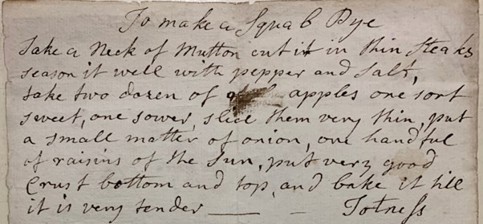 To make a Squab Pye
Take a Neck of Mutton cut it in thin Steaks
season it well with pepper and Salt,
take two dozen of apples one sort
sweet, one sower, slice them very thin, put
a small matter of onion, one handful
of raisins of the Sun, put very good
Crust bottom and top, and bake it till
it is very tender — — Totness